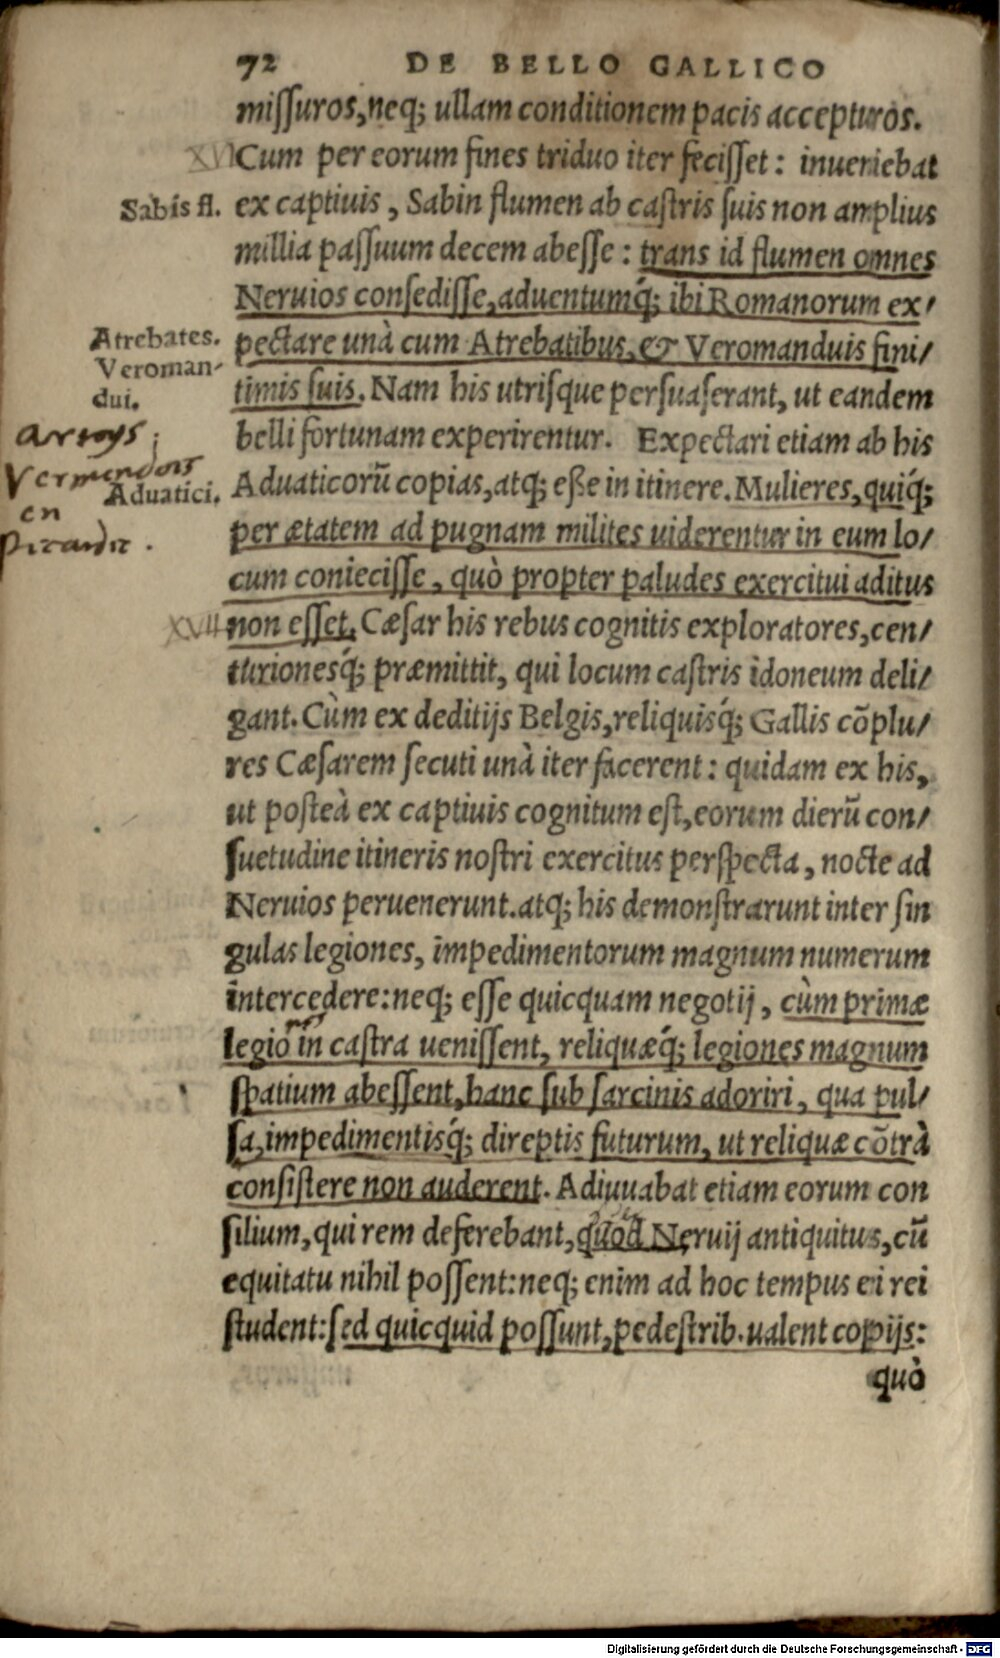 72 DE BELLO GALLICO
miſſuros, neq; ullam conditionem pacis accepturos.
XVI Cum per eorum fines triduo iter feciſſet: inueniebat
Sabis fl. ex captiuis, Sabin flumen ab caſtris ſuis non amplius
millia paſſuum decem abeſſe: trans id flumen omnes
Neruios conſediſſe, aduentumq́; ibi Romanorum ex/
Atrebates. pectare unà cum Atrebatibus, & Veromanduis fini/
Veroman-
dui. timis ſuis. Nam his utriſque perſuaſerant, ut eandem
Artoys; belli fortunam experirentur. Expectari etiam ab his
Vermendois
Aduatici. Aduaticorũ copias, atq; eſſe in itinere. Mulieres, quiq́;
en
Picardie. per ætatem ad pugnam milites uiderentur in eum lo/
cum conieciſſe, quò propter paludes exercitui aditus
XVII non eſſet. Cæſar his rebus cognitis exploratores, cen/
turionesq́; præmittit, qui locum caſtris idoneum deli/
gant. Cùm ex deditijs Belgis, reliquisq́; Gallis cõplu/
res Cæſarem ſecuti unà iter facerent: quidam ex his,
ut poſteà ex captiuis cognitum eſt, eorum dierũ con/
ſuetudine itineris noſtri exercitus perſpecta, nocte ad
Neruios peruenerunt. atq; his demonſtrarunt inter ſin
gulas legiones, impedimentorum magnum numerum
intercedere: neq; eſſe quicquam negotij, cùm primæ
legio in caſtra ueniſſent, reliquæq́; legiones magnum
ſpatium abeſſent, hanc ſub ſarcinis adoriri, qua pul/
ſa, impedimentisq́; direptis futurum, ut reliquæ cõtrà
conſiſtere non auderent. Adiuuabat etiam eorum con
ſilium, qui rem deferebant, quòd Neruij antiquitus, cũ
equitatu nihil poſſent: neq; enim ad hoc tempus ei rei
ſtudent: ſed quicquid poſſunt, pedeſtrib. ualent copijs:
quò
Digitalisierung gefördert durch die Deutsche Forschungsgemeinschaft - DFG